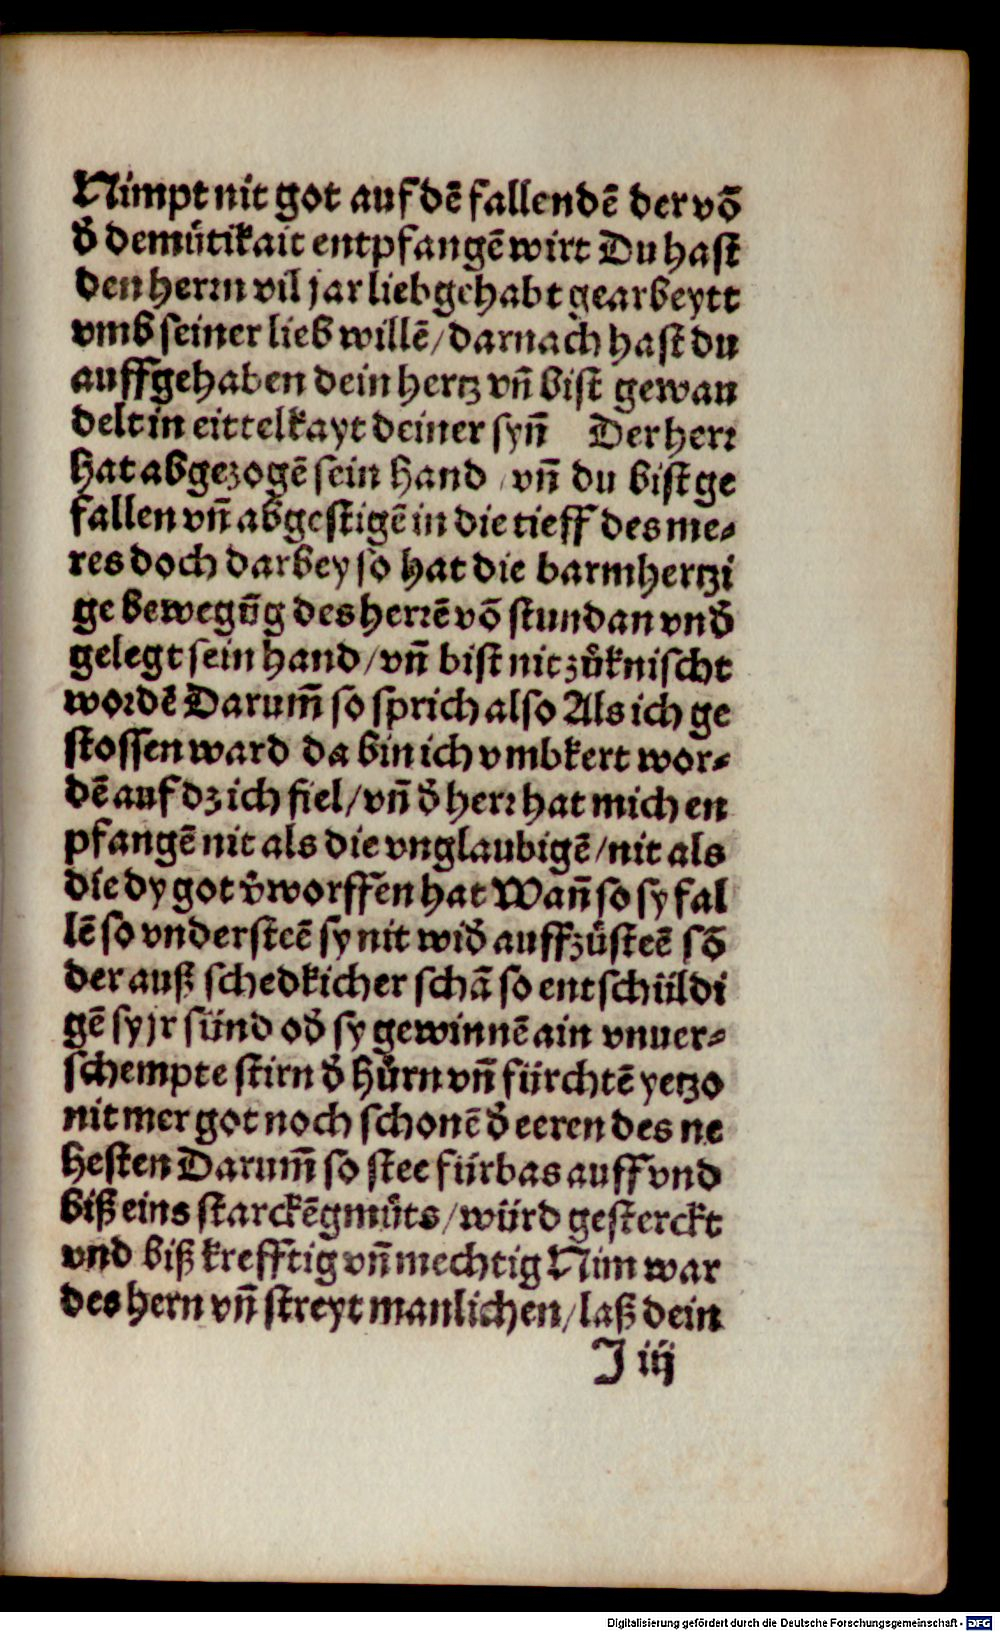 Nimpt nit got auf dē fallendē der vō
d̕ demütikait entpfangē wirt Du hast
den herrn vil jar lieb gehabt gearbeytt
vmb seiner lieb willē/darnach hast du
auffgehaben dein hertz vn̄ bist gewan
delt in eittelkayt deiner syn̄ Der herr
hat abgezogē sein hand /vn̄ du bist ge
fallen vn̄ abgestigē in die tieff des me⸗
res doch darbey so hat die barmhertzi
ge bewegūg des herrē vō stund an vnd̕
gelegt sein hand/vn̄ bist nit zůknischt
wordē Darum̄ so sprich also Als ich ge
stossen ward da bin ich vmbkert wor⸗
dē auf dz ich fiel/vn̄ d̕ herr hat mich en
pfangē nit als die vnglaubigē/nit als
die dy got v̕worffen hat Wan̄ so sy fal
lē so vndersteē sy nit wid̕ auffzůsteē sō
der auß schedkicher schā so entschüldi
gē sy jr sünd od̕ sy gewinnē ain vnuer⸗
schempte stirn d̕ hůrn vn̄ fürchtē yetzo
nit mer got noch schonē d̕ eeren des ne
hesten Darum̄ so stee fürbas auff vnd
biß eins starckēgmůts/würd gesterckt
vnd biß krefftig vn̄ mechtig Nim war
des hern vn̄ streyt manlichen/laß dein
J iij
Digitalisierung gefördert durch die Deutsche Forschungsgemeinschaft - DFG